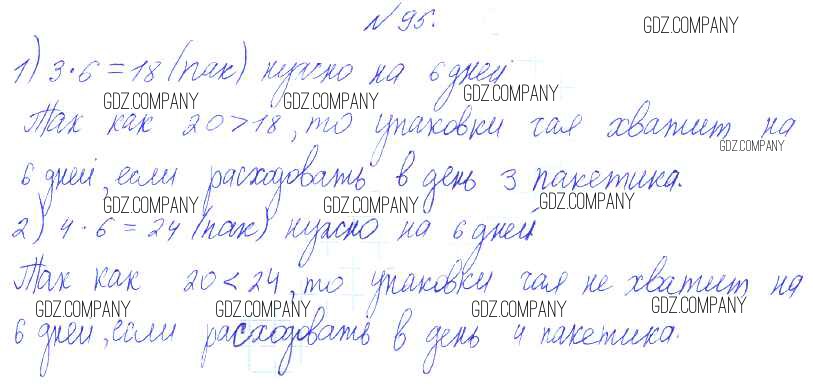 № 95.
GDZ.COMPANY
1) 3·6=18 (пак) нужно на 6 дней
GDZ.COMPANY GDZ.COMPANY GDZ.COMPANY
Так как 20>18, то упаковки чая хватит на
GDZ.COMPANY
6 дней, если расходовать в день 3 пакетика.
GDZ.COMPANY GDZ.COMPANY GDZ.COMPANY
2) 4·6=24 (пак) нужно на 6 дней
Так как 20<24, то упаковки чая не хватит на
GDZ.COMPANY GDZ.COMPANY GDZ.COMPANY GDZ.COMPANY
6 дней, если расходовать в день 4 пакетика.